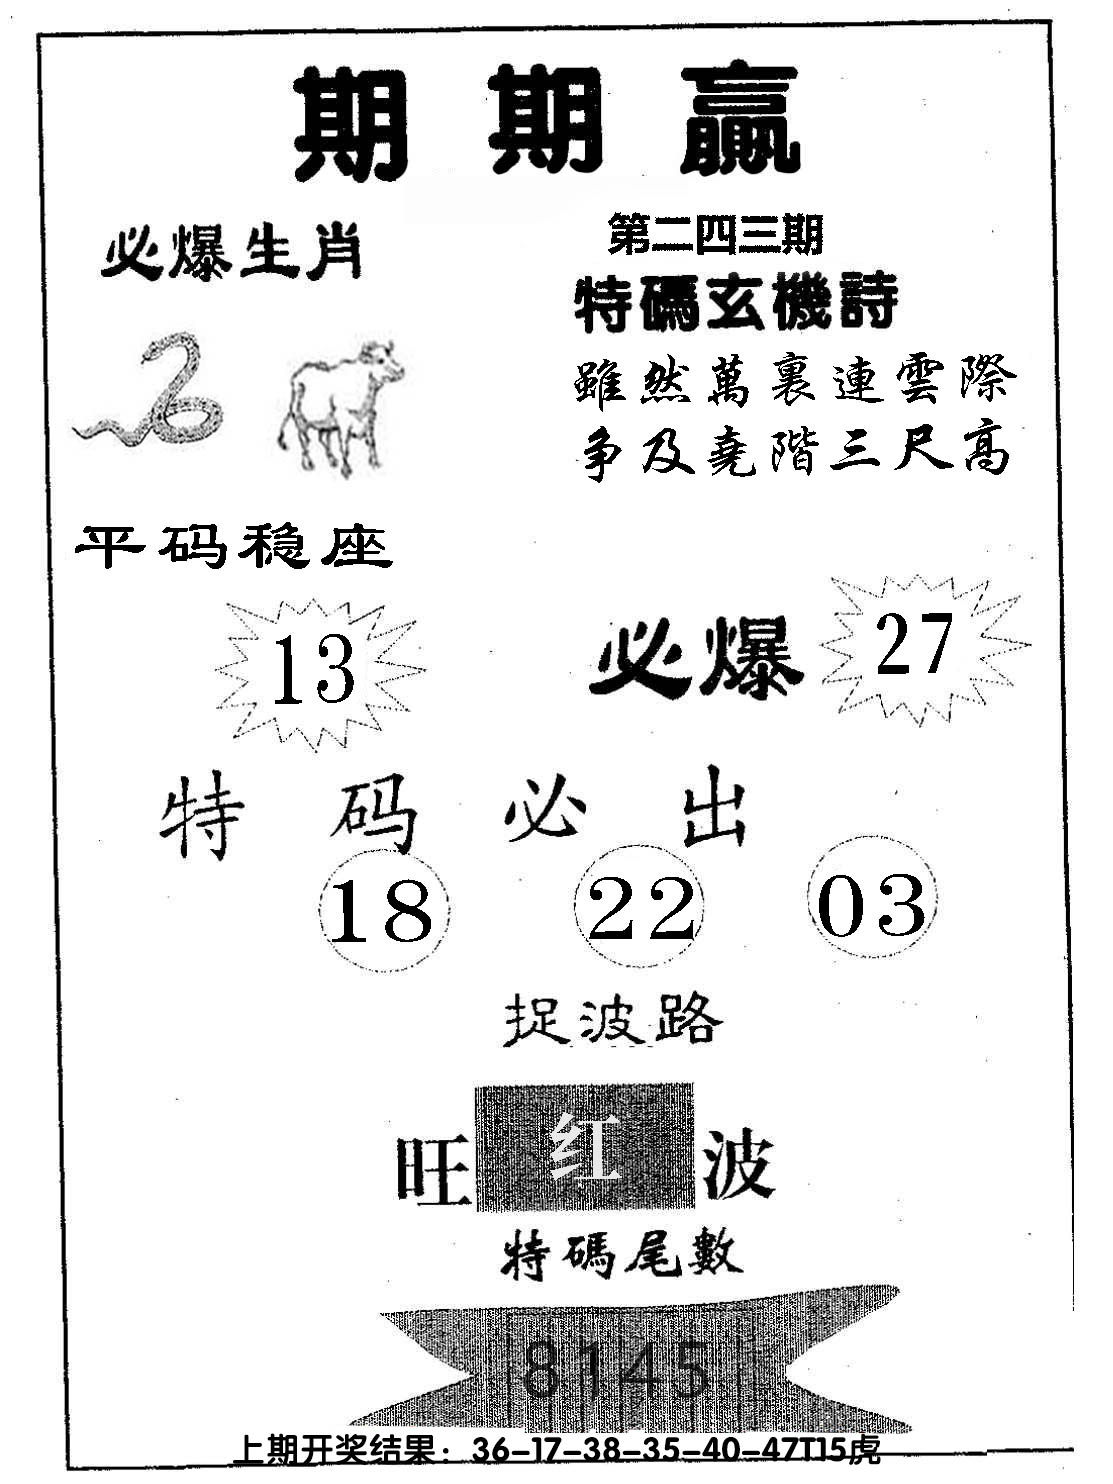 期期贏
必爆生肖
第二四三期
特碼玄機詩
雖然萬裏連雲際
争及堯階三尺高
平码稳座
13
必爆
27
特码必出
18 22 03
捉波路
旺红波
特碼尾數
8145
上期开奖结果：36-17-38-35-40-47T15虎